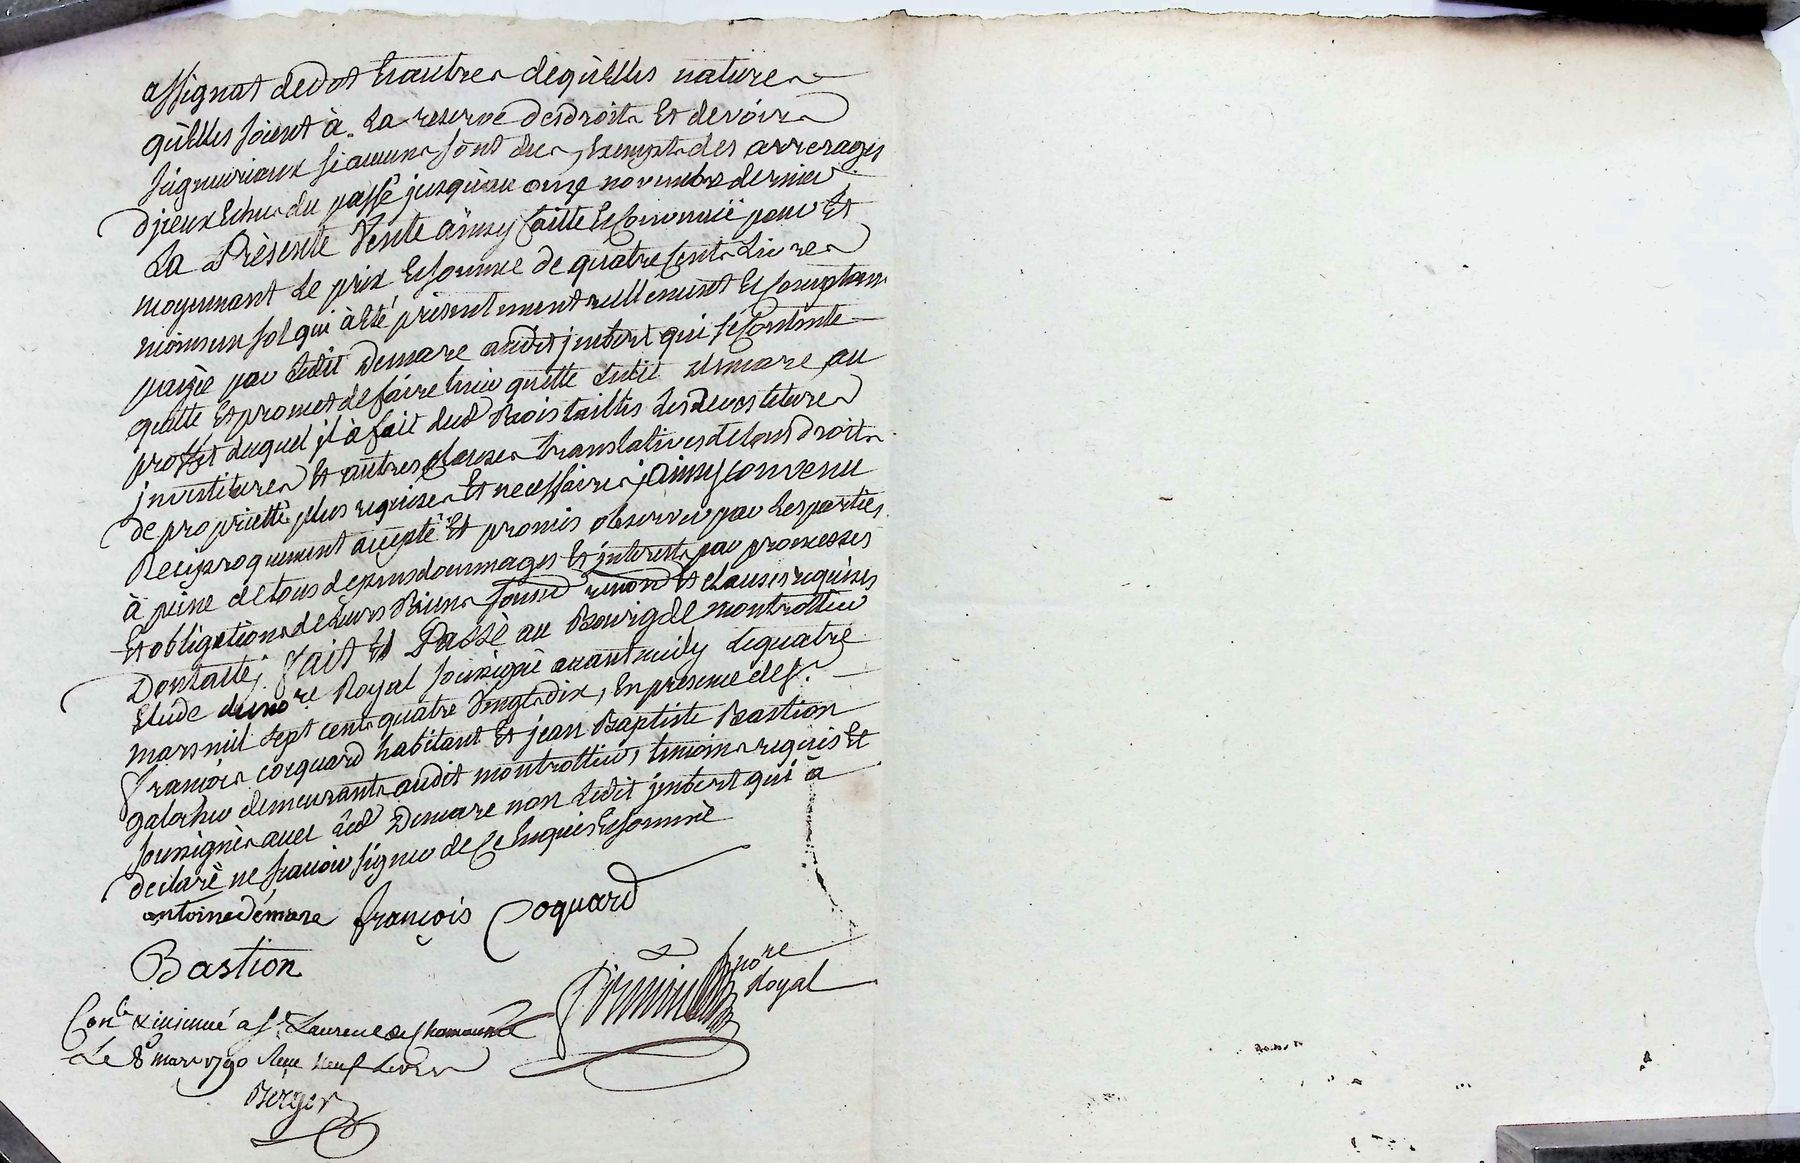 assignat de dot Et autres de qu'Elles natures
qu'Elles soient à la reserve des droits Et devoirs
seigneuriaux si aucuns sont dus, Exempts des arrerages
d'jceux Echus du passé jusqu'au onze novembre dernier
La Présente Vente ainsy faitte Et Convenuë pour Et
moyennant le prix Et somme de quatre Cents Livres
moins un sol qui à Eté présentement reellement Et Comptant
payée par Ledit Demare audit jmbert qui s'en Contente
quitte Et promet de faire tenir quitte Ledit demare au
proffit duquel jl à fait les devestitures
jnvestitures Et autres clauses translatives de tous droits
de proprietté plus requises Et necessaires, Ainsy convenu
Reciproquement accepté Et promis observer par Les parties
à peine de tous depens dommages Et jnterests par promesses
Et obligations de Leurs Biens soumis renond Et clauses requises
Dont acte, fait Et Passé au Bourg de montrottier
Etude du nore Royal soussigné avant midy Le quatre
mars mil sept cents quatre Vingts dix, En presence de sr
François coquard habitant Et jean Baptiste Bastion
galochier demeurants audit montrottier, temoins requis Et
soussignés avec Led Demare non Ledit jmbert qui à
declaré ne sçavoir signer de Ce Enquis Et sommé
antoine démare françois Coquard
Bastion
nore Royal
Conle & insinué a St Laurent de Chamousset
Le 8 mars 1790 Reçu neuf Livres
Berger